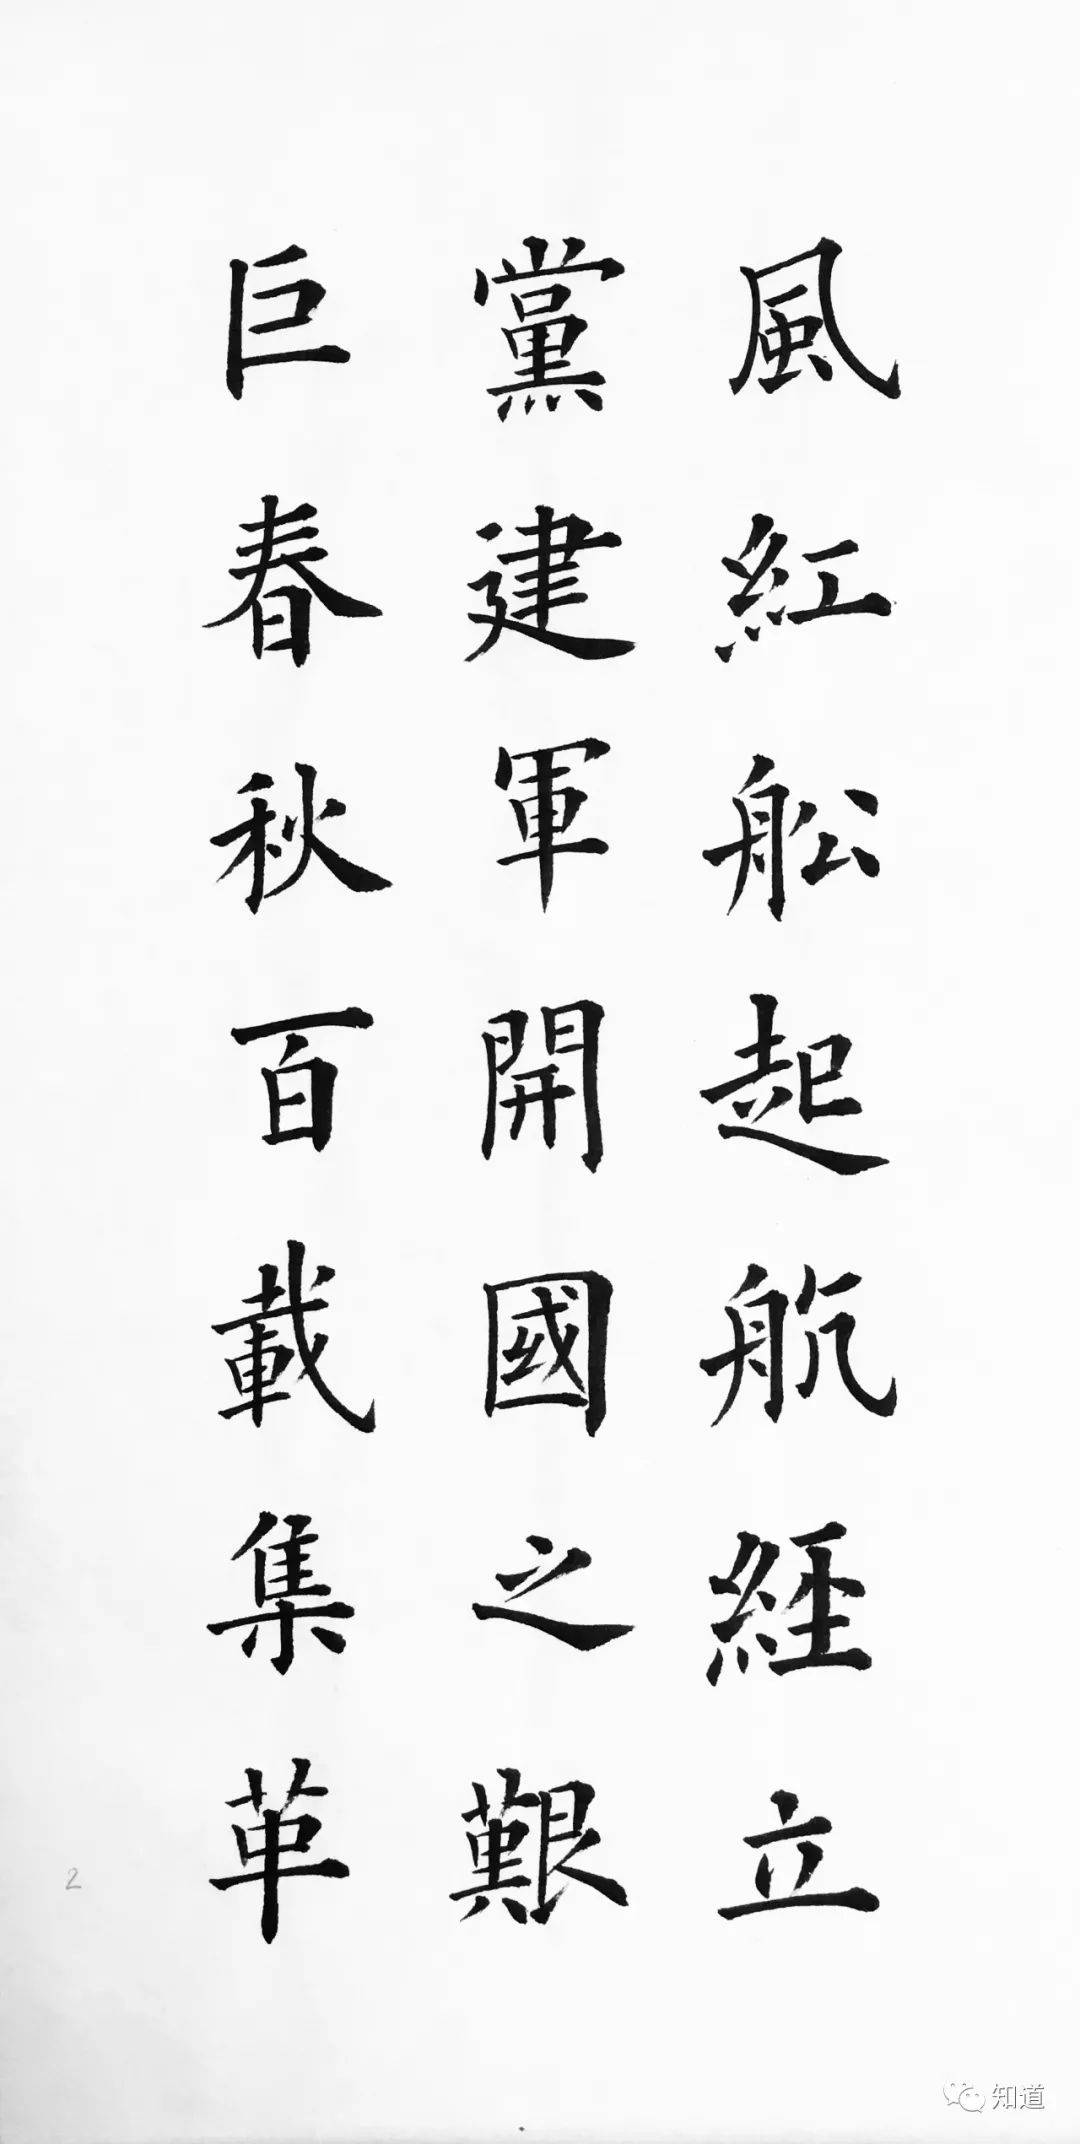 風紅舩起航經立
黨建軍開國之艱
巨春秋百載集革
2
知道